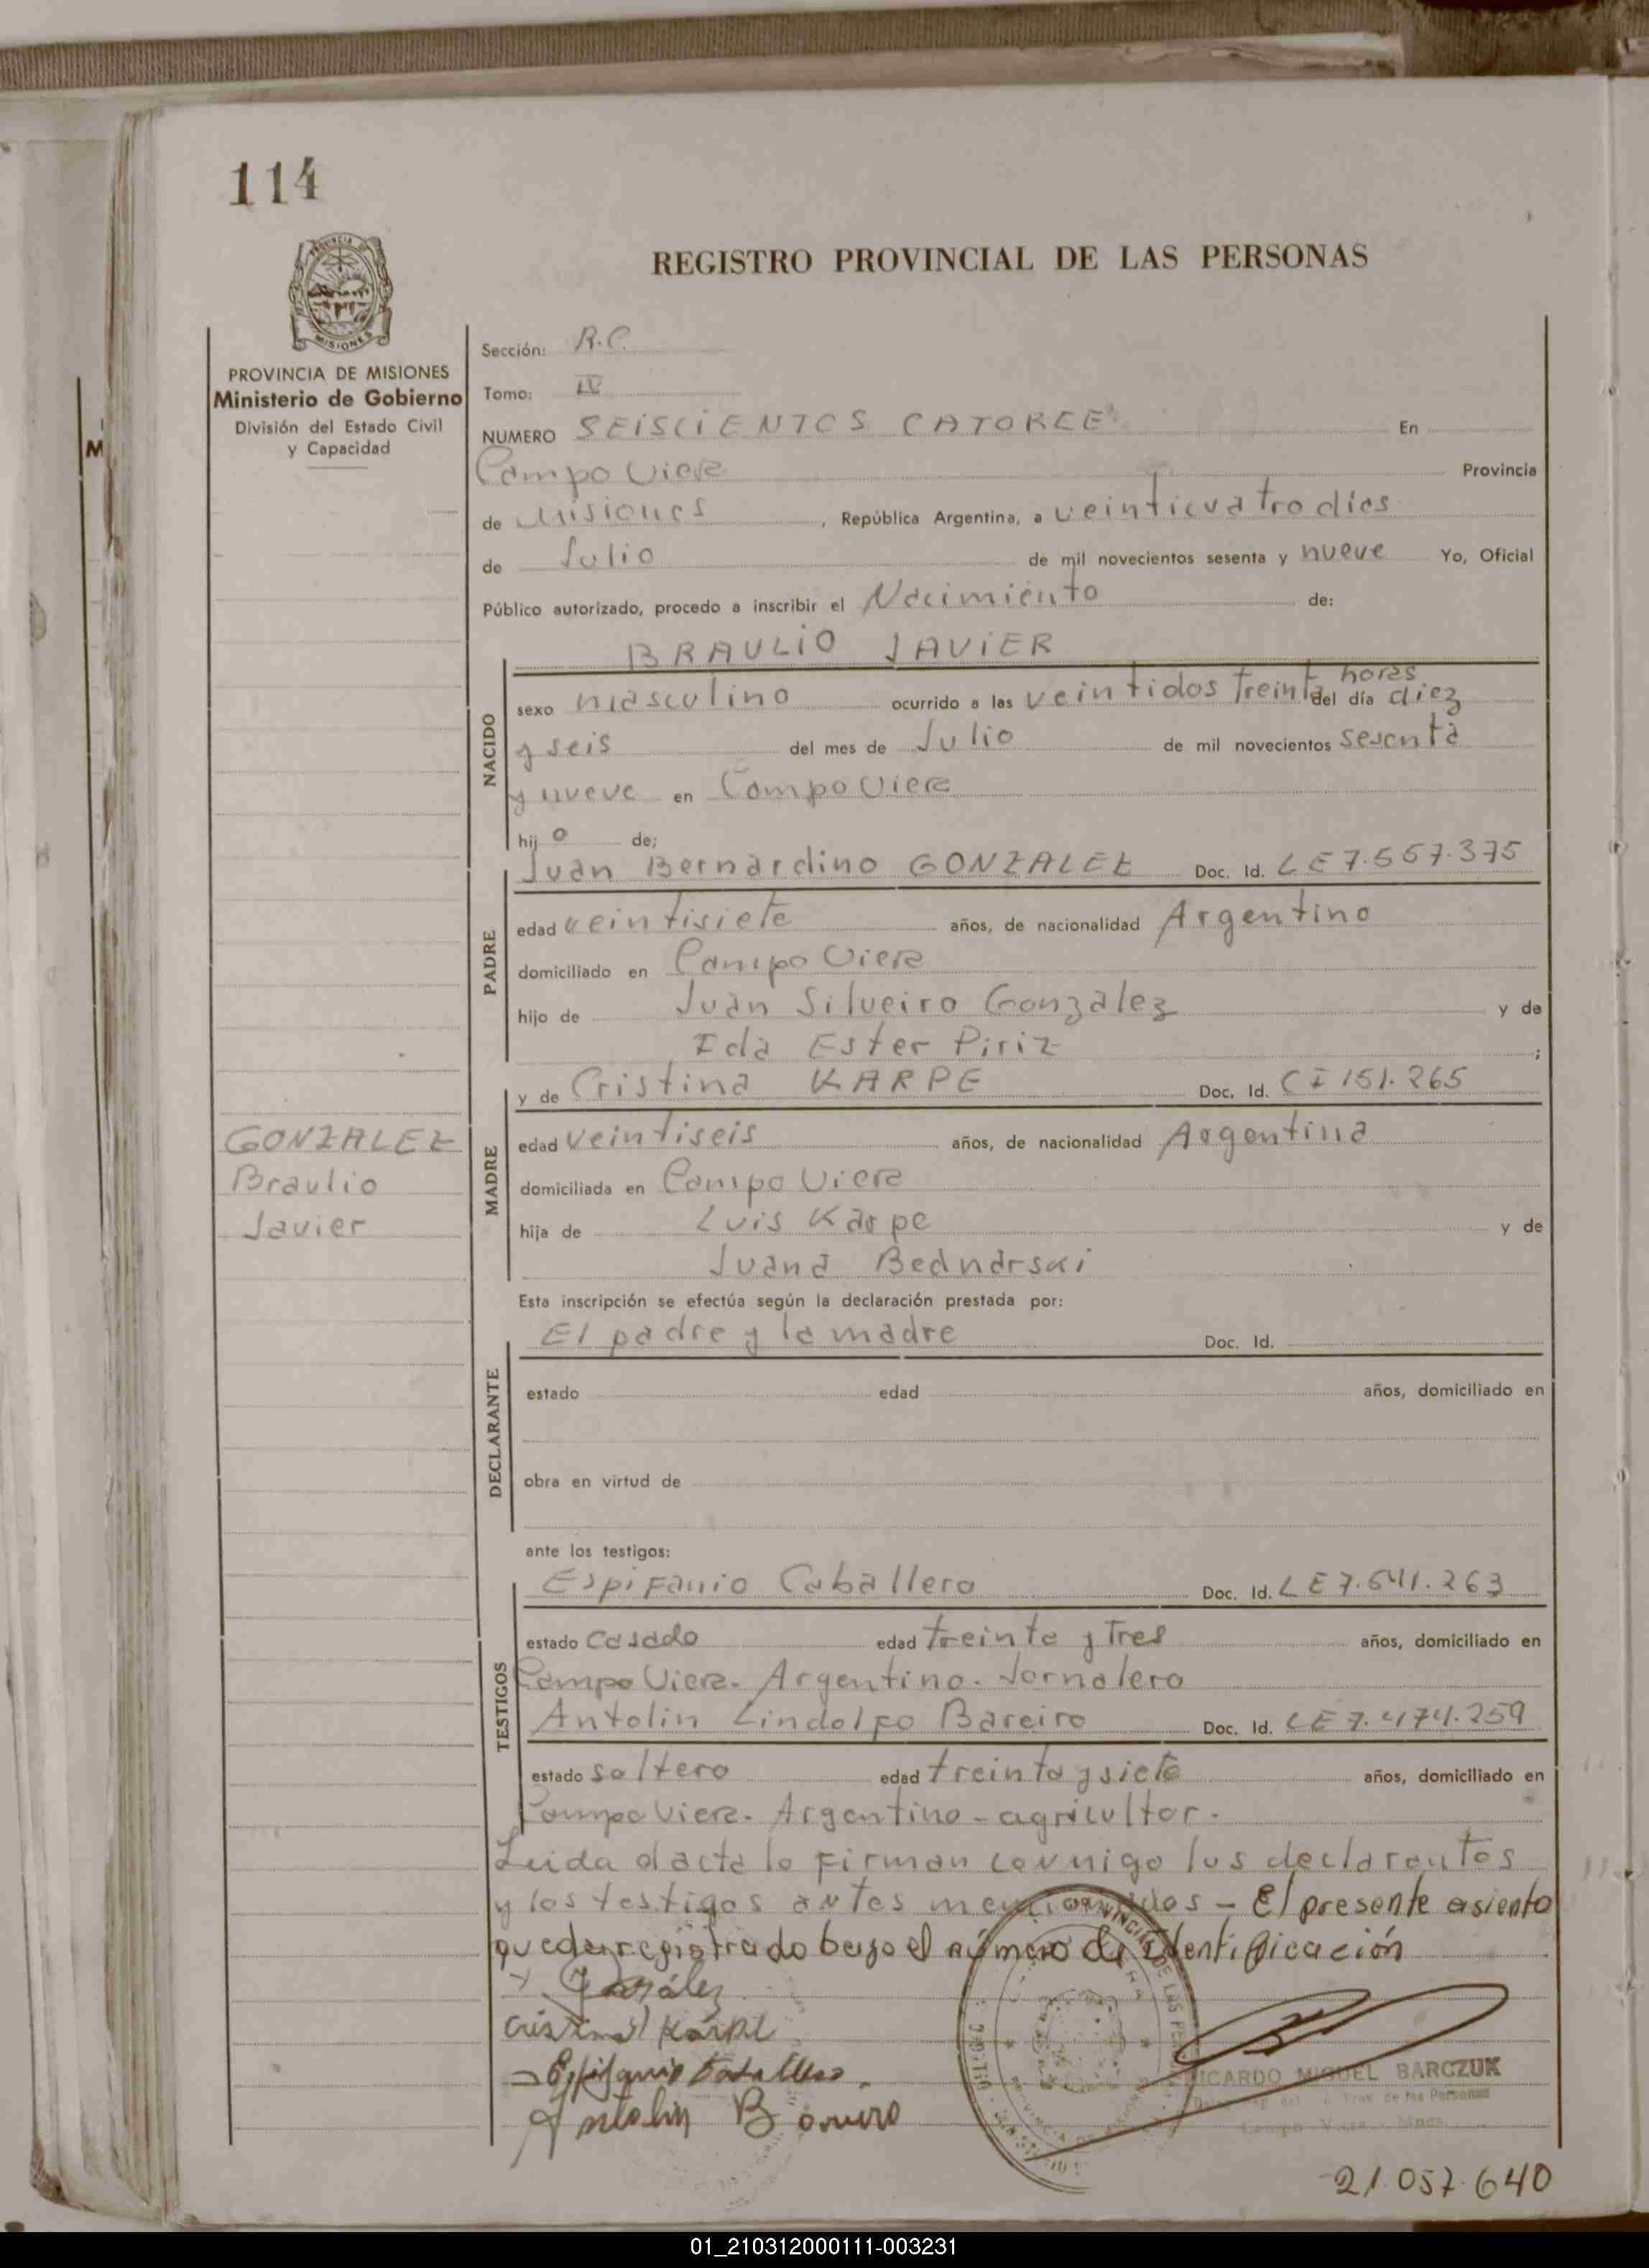 114
REGISTRO PROVINCIAL DE LAS PERSONAS
MISIONES
PROVINCIA DE MISIONES
Ministerio de Gobierno
División del Estado Civil
y Capacidad
Sección: R.C.
Tomo: IV
NUMERO SEISCIENTOS CATORCE En
Campo Viera Provincia
de Misiones, República Argentina, a veinticuatro dias
de Julio de mil novecientos sesenta y nueve Yo, Oficial
Público autorizado, procedo a inscribir el Nacimiento de:
BRAULIO JAVIER
NACIDO
sexo masculino ocurrido a las veintidos treinta horas del día diez
y seis del mes de Julio de mil novecientos sesenta
y nueve en Campo Viera
hijo de;
PADRE
Juan Bernardino GONZALEZ Doc. Id. LE 7.557.375
edad veintisiete años, de nacionalidad Argentino
domiciliado en Campo Viera
hijo de Juan Silveiro Gonzalez y de
Ida Ester Piriz ;
MADRE
y de Cristina KARPE Doc. Id. CI 151.265
edad veintiseis años, de nacionalidad Argentina
domiciliada en Campo Viera
hija de Luis Karpe y de
Juana Bednarski
GONZALEZ
Braulio
Javier
Esta inscripción se efectúa según la declaración prestada por:
El padre y la madre Doc. Id.
DECLARANTE
estado edad años, domiciliado en
obra en virtud de
ante los testigos:
TESTIGOS
Espifanio Caballero Doc. Id. LE 7.541.263
estado casado edad treinta y tres años, domiciliado en
Campo Viera. Argentino. Jornalero
Antolin Lindolfo Bareiro Doc. Id. LE 7.474.259
estado soltero edad treinta y siete años, domiciliado en
Campo Viera. Argentino - agricultor.
Leida el acta la firman conmigo los declarantes
y los testigos antes mencionados - El presente asiento
queda registrado bajo el número de identificación
González
Cristina Karpe
Espifanio Caballero
Antolin Bareiro
RICARDO MIGUEL BARCZUK
21.057.640
01_210312000111-003231